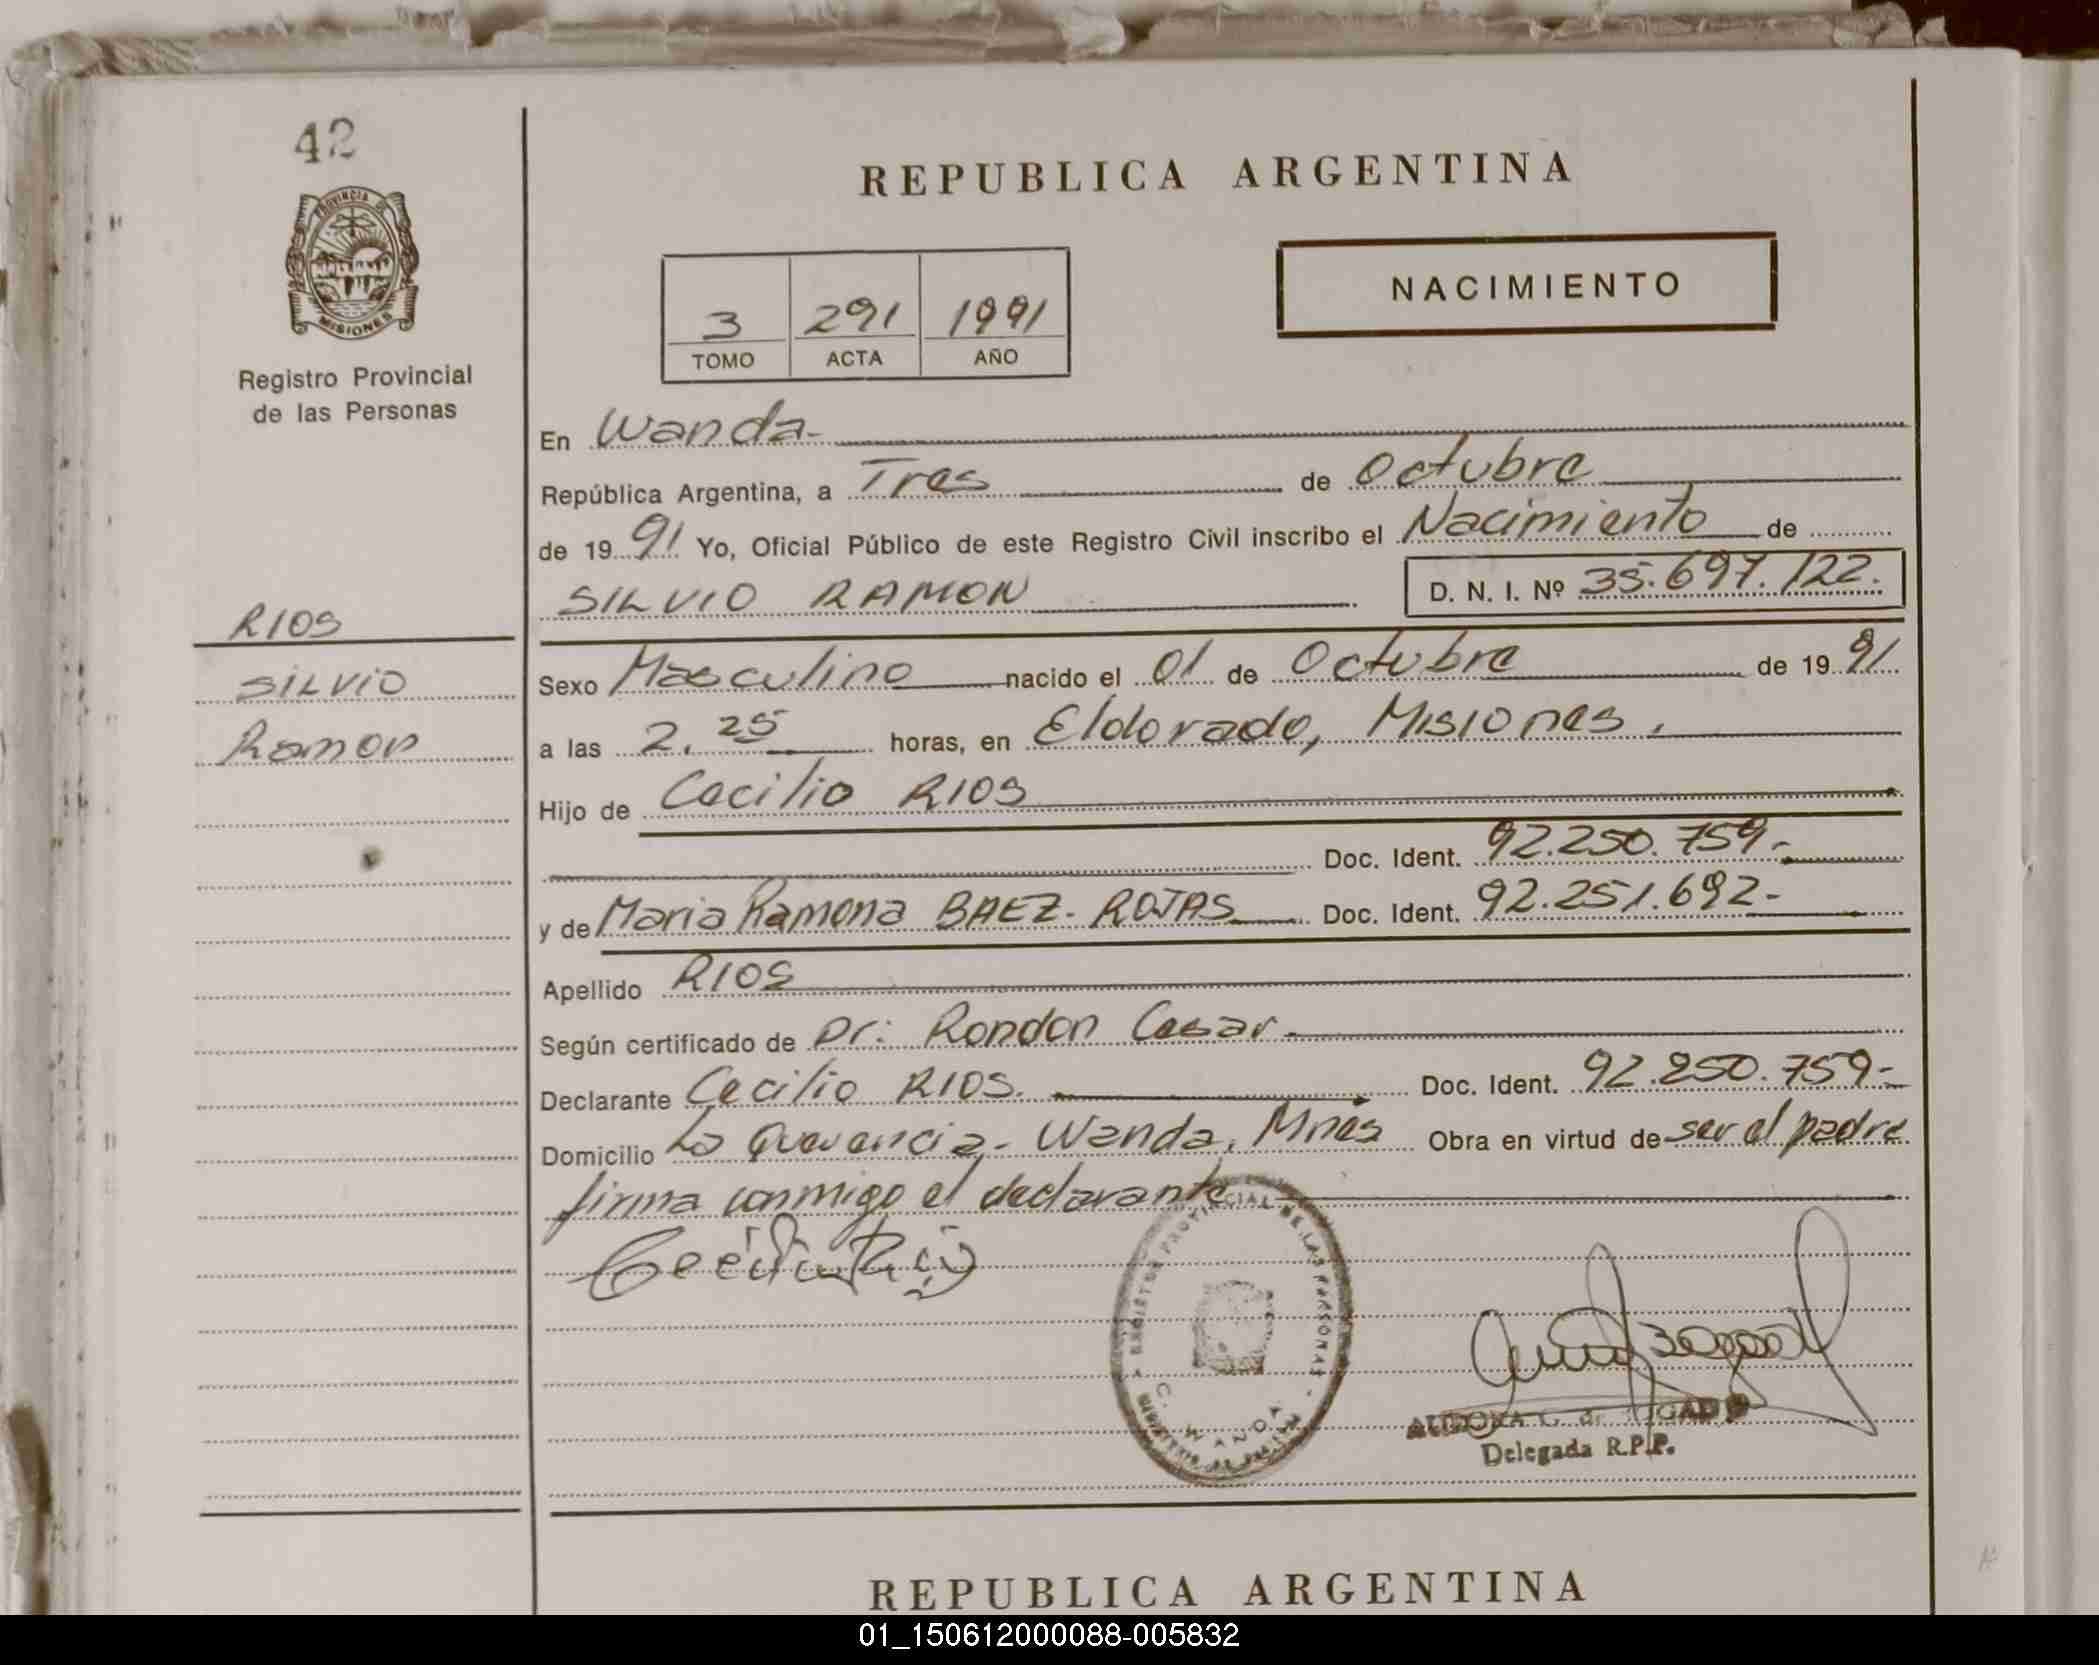 42
PROVINCIA DE
MISIONES
Registro Provincial
de las Personas
RIOS
SILVIO
Ramon
REPUBLICA ARGENTINA
3 291 1991
TOMO ACTA AÑO
NACIMIENTO
En Wanda-
República Argentina, a Tres de Octubre
de 19 91 Yo, Oficial Público de este Registro Civil inscribo el Nacimiento de
SILVIO RAMON D. N. I. Nº 35.697.122.
Sexo Masculino nacido el 01 de Octubre de 19 91
a las 2.25 horas, en Eldorado, Misiones.
Hijo de Cecilio RIOS
Doc. Ident. 92.250.759-
y de Maria Ramona BAEZ- ROJAS Doc. Ident. 92.251.692-
Apellido RIOS
Según certificado de Dr: Rondon Cesar-
Declarante Cecilio RIOS. Doc. Ident. 92.250.759-
Domicilio La Querencia- Wanda, Mnes Obra en virtud de ser el padre
firma conmigo el declarante
REGISTRO PROVINCIAL DE LAS PERSONAS
WANDA
Delegada R.P.P.
REPUBLICA ARGENTINA
01_150612000088-005832